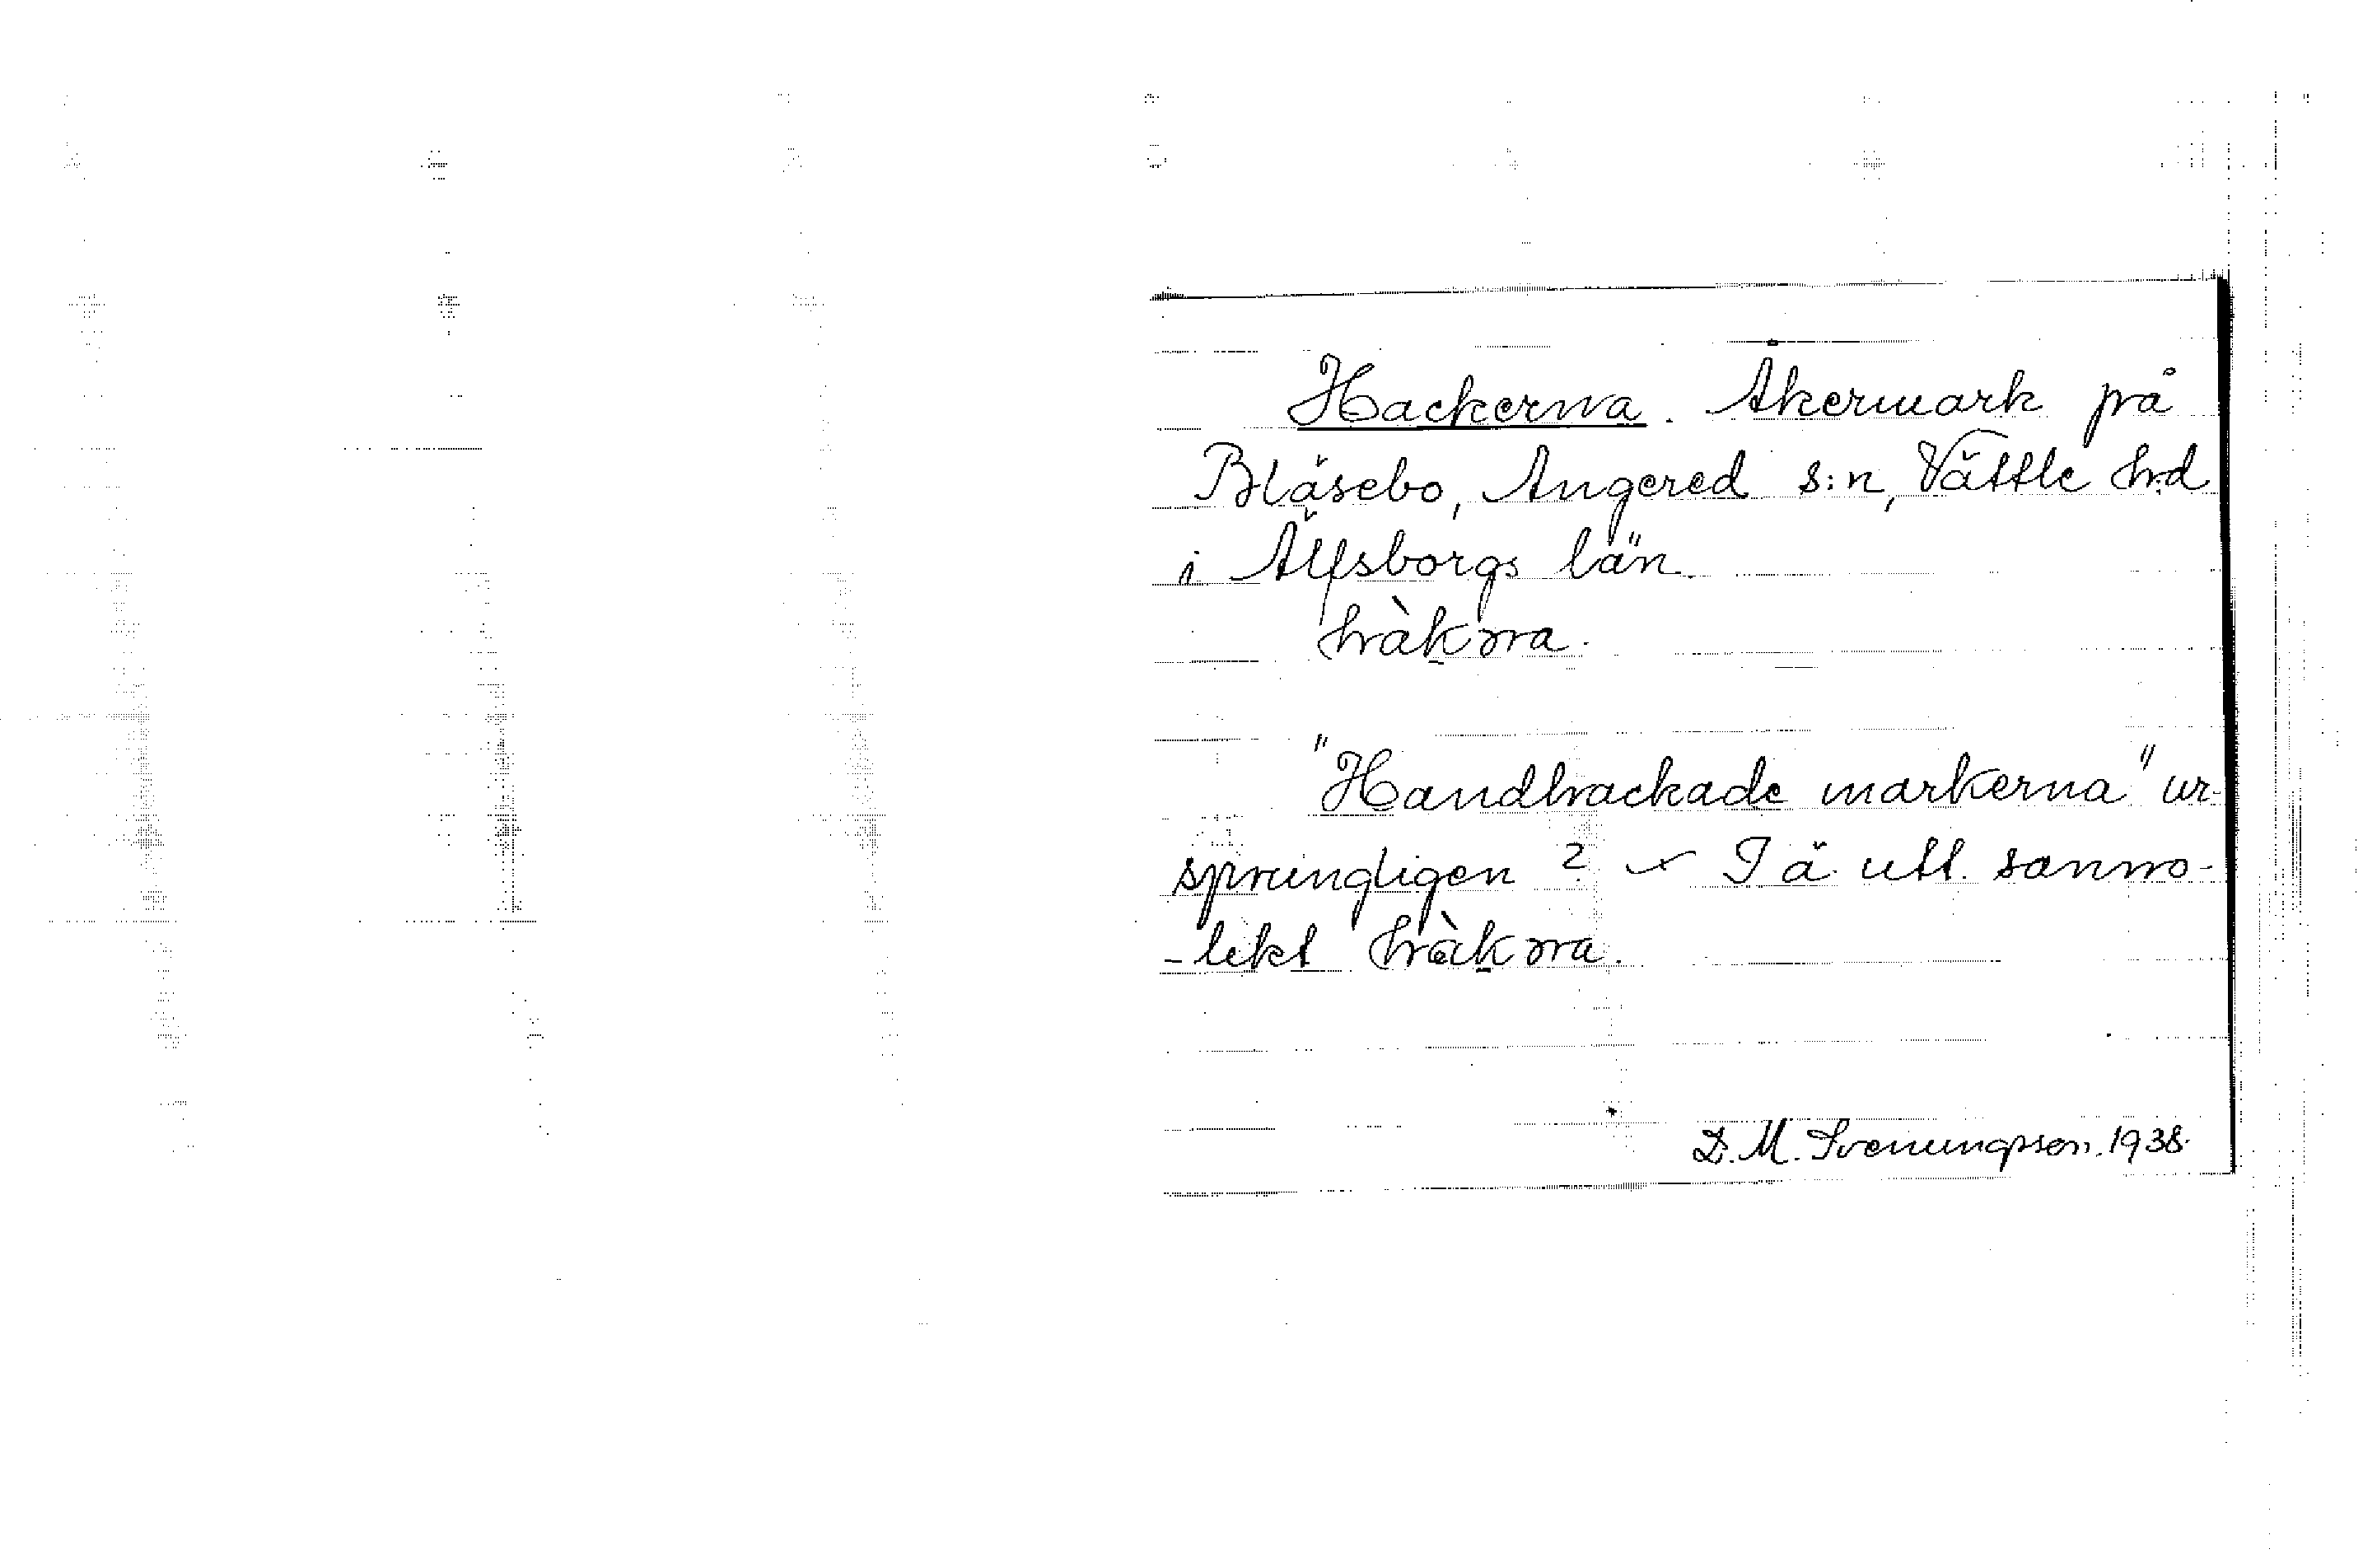 Hackerna. Åkermark på
Bläsebo, Angered s:n, Vättle hd
i Älfsborgs län.
hàkɔra.
"Handhackade markerna" ur-
sprungligen? - I ä. utt. sanno-
-likt hàkɔra.
D. M. Svenungsson. 1938.